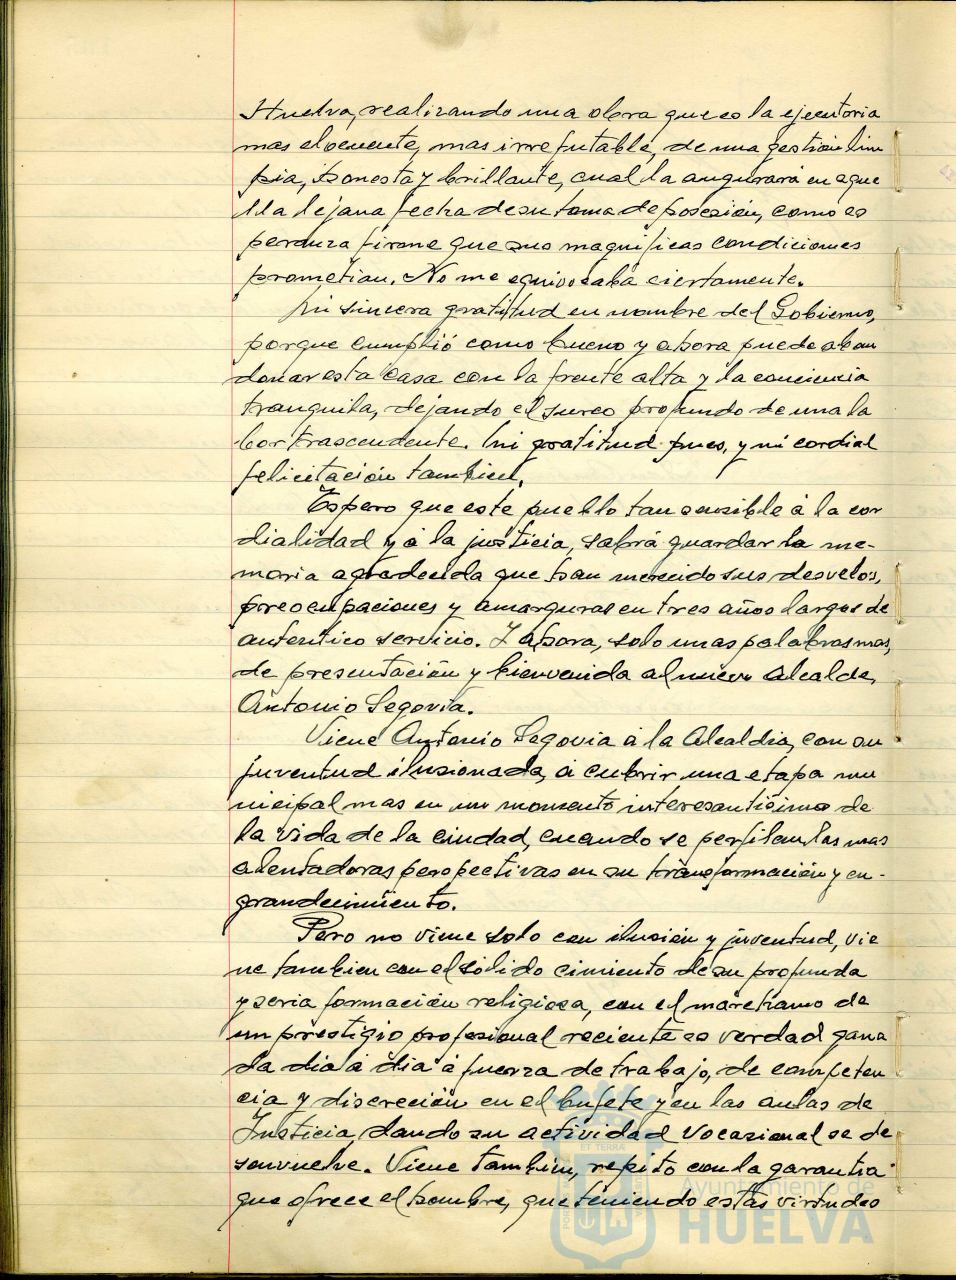 Huelva, realizando una obra que es la ejecutoria
mas elocuente, mas irrefutable, de una gestión lim
pia, honesta y brillante, cual la augurará en aque
lla lejana fecha de su toma de posesión, como es
peranza firme que sus magnificas condiciones
prometian. No me equivocaba ciertamente.
Mi sincera gratitud en nombre del Gobierno,
porque cumplió como bueno y ahora puede aban
donar esta casa con la frente alta y la conciencia
tranquila, dejando el surco profundo de una la
bor trascendente. Mi gratitud pues, y mi cordial
felicitación tambien.
Espero que este pueblo tan sensible á la cor
dialidad y á la justicia, sabrá guardar la me-
moria agradecida que han merecido sus desvelos,
preocupaciones y amarguras en tres años largos de
autentico servicio. Y ahora, solo unas palabras mas,
de presentación y bienvenida al nuevo Alcalde,
Antonio Segovia.
Viene Antonio Segovia á la Alcaldia, con su
juventud ilusionada, á cubrir una etapa mu
nicipal mas en un momento interesantísimo de
la vida de la ciudad, cuando se perfilan las mas
alentadoras perspectivas en su transformación y en-
grandecimiento.
Pero no viene solo con ilusión y juventud, vie
ne tambien con el sólido cimiento de su profunda
y seria formación religiosa, con el marchamo de
un prestigio profesional reciente es verdad gana
da dia á dia á fuerza de trabajo, de competen
cia y discreción en el bufete y en las aulas de
Justicia, dando su actividad vocacional se de
senvuelve. Viene tambien, repito con la garantia
que ofrece el hombre, que teniendo estas virtudes
Ayuntamiento de
HUELVA